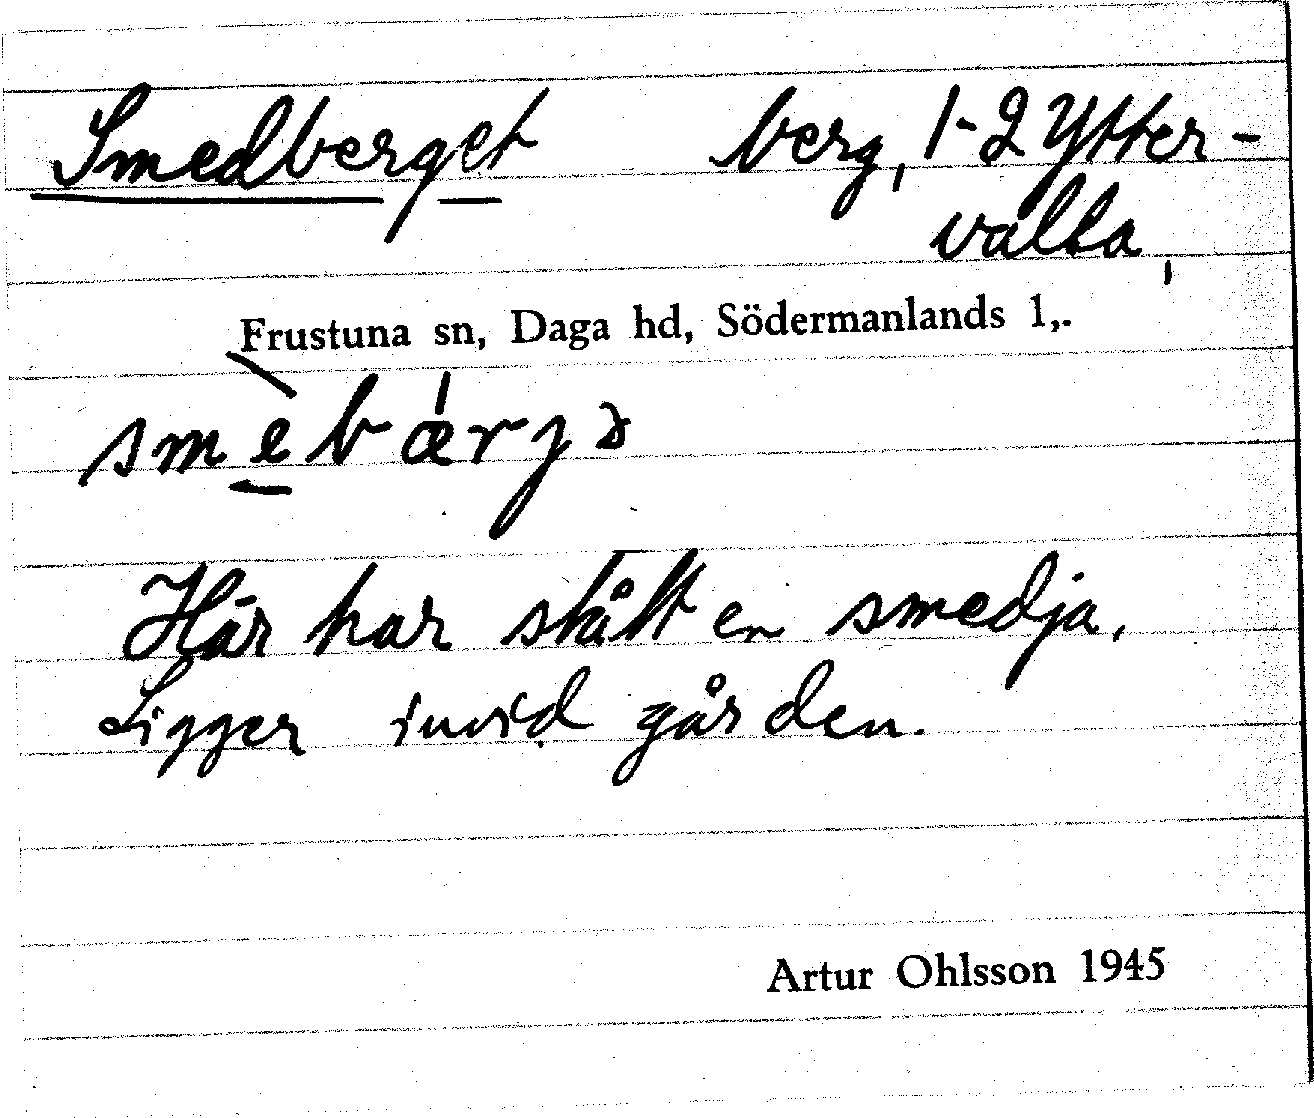 Smedberget berg, 1-2 Ytter-
valla,
Frustuna sn, Daga hd, Södermanlands l,.
smè̠bǽrjə
Här har stått en smedja,
Ligger invid gården.
Artur Ohlsson 1945